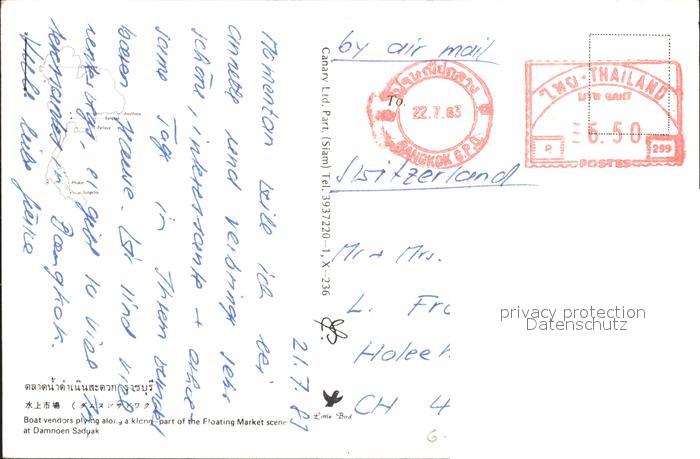 21.7.83
Momentan weile ich bei
Annette und verbringe sehr
schöne, interessante +
same Tage in Ihrem
Hause. Wir sind viel
unterwegs, es gibt so viel
in Bangkok.
Viele liebe Grüsse
ตลาดน้ำดำเนินสะดวก ราชบุรี
水上市場 (ダムヌンサドワク)
Boat vendors plying along a klong-part of the Floating Market scene
at Damnoen Saduak
Canary Ltd. Part. (Siam) Tel. 3937220-1, X-236
Little Bird
by air mail
To.
22.7.83
BANGKOK G.P.O.
ไทย • THAILAND
6.50
P.
299
POSTES
Switzerland
Mr + Mrs.
L. Fr
Holee
CH 4
privacy protection
Datenschutz